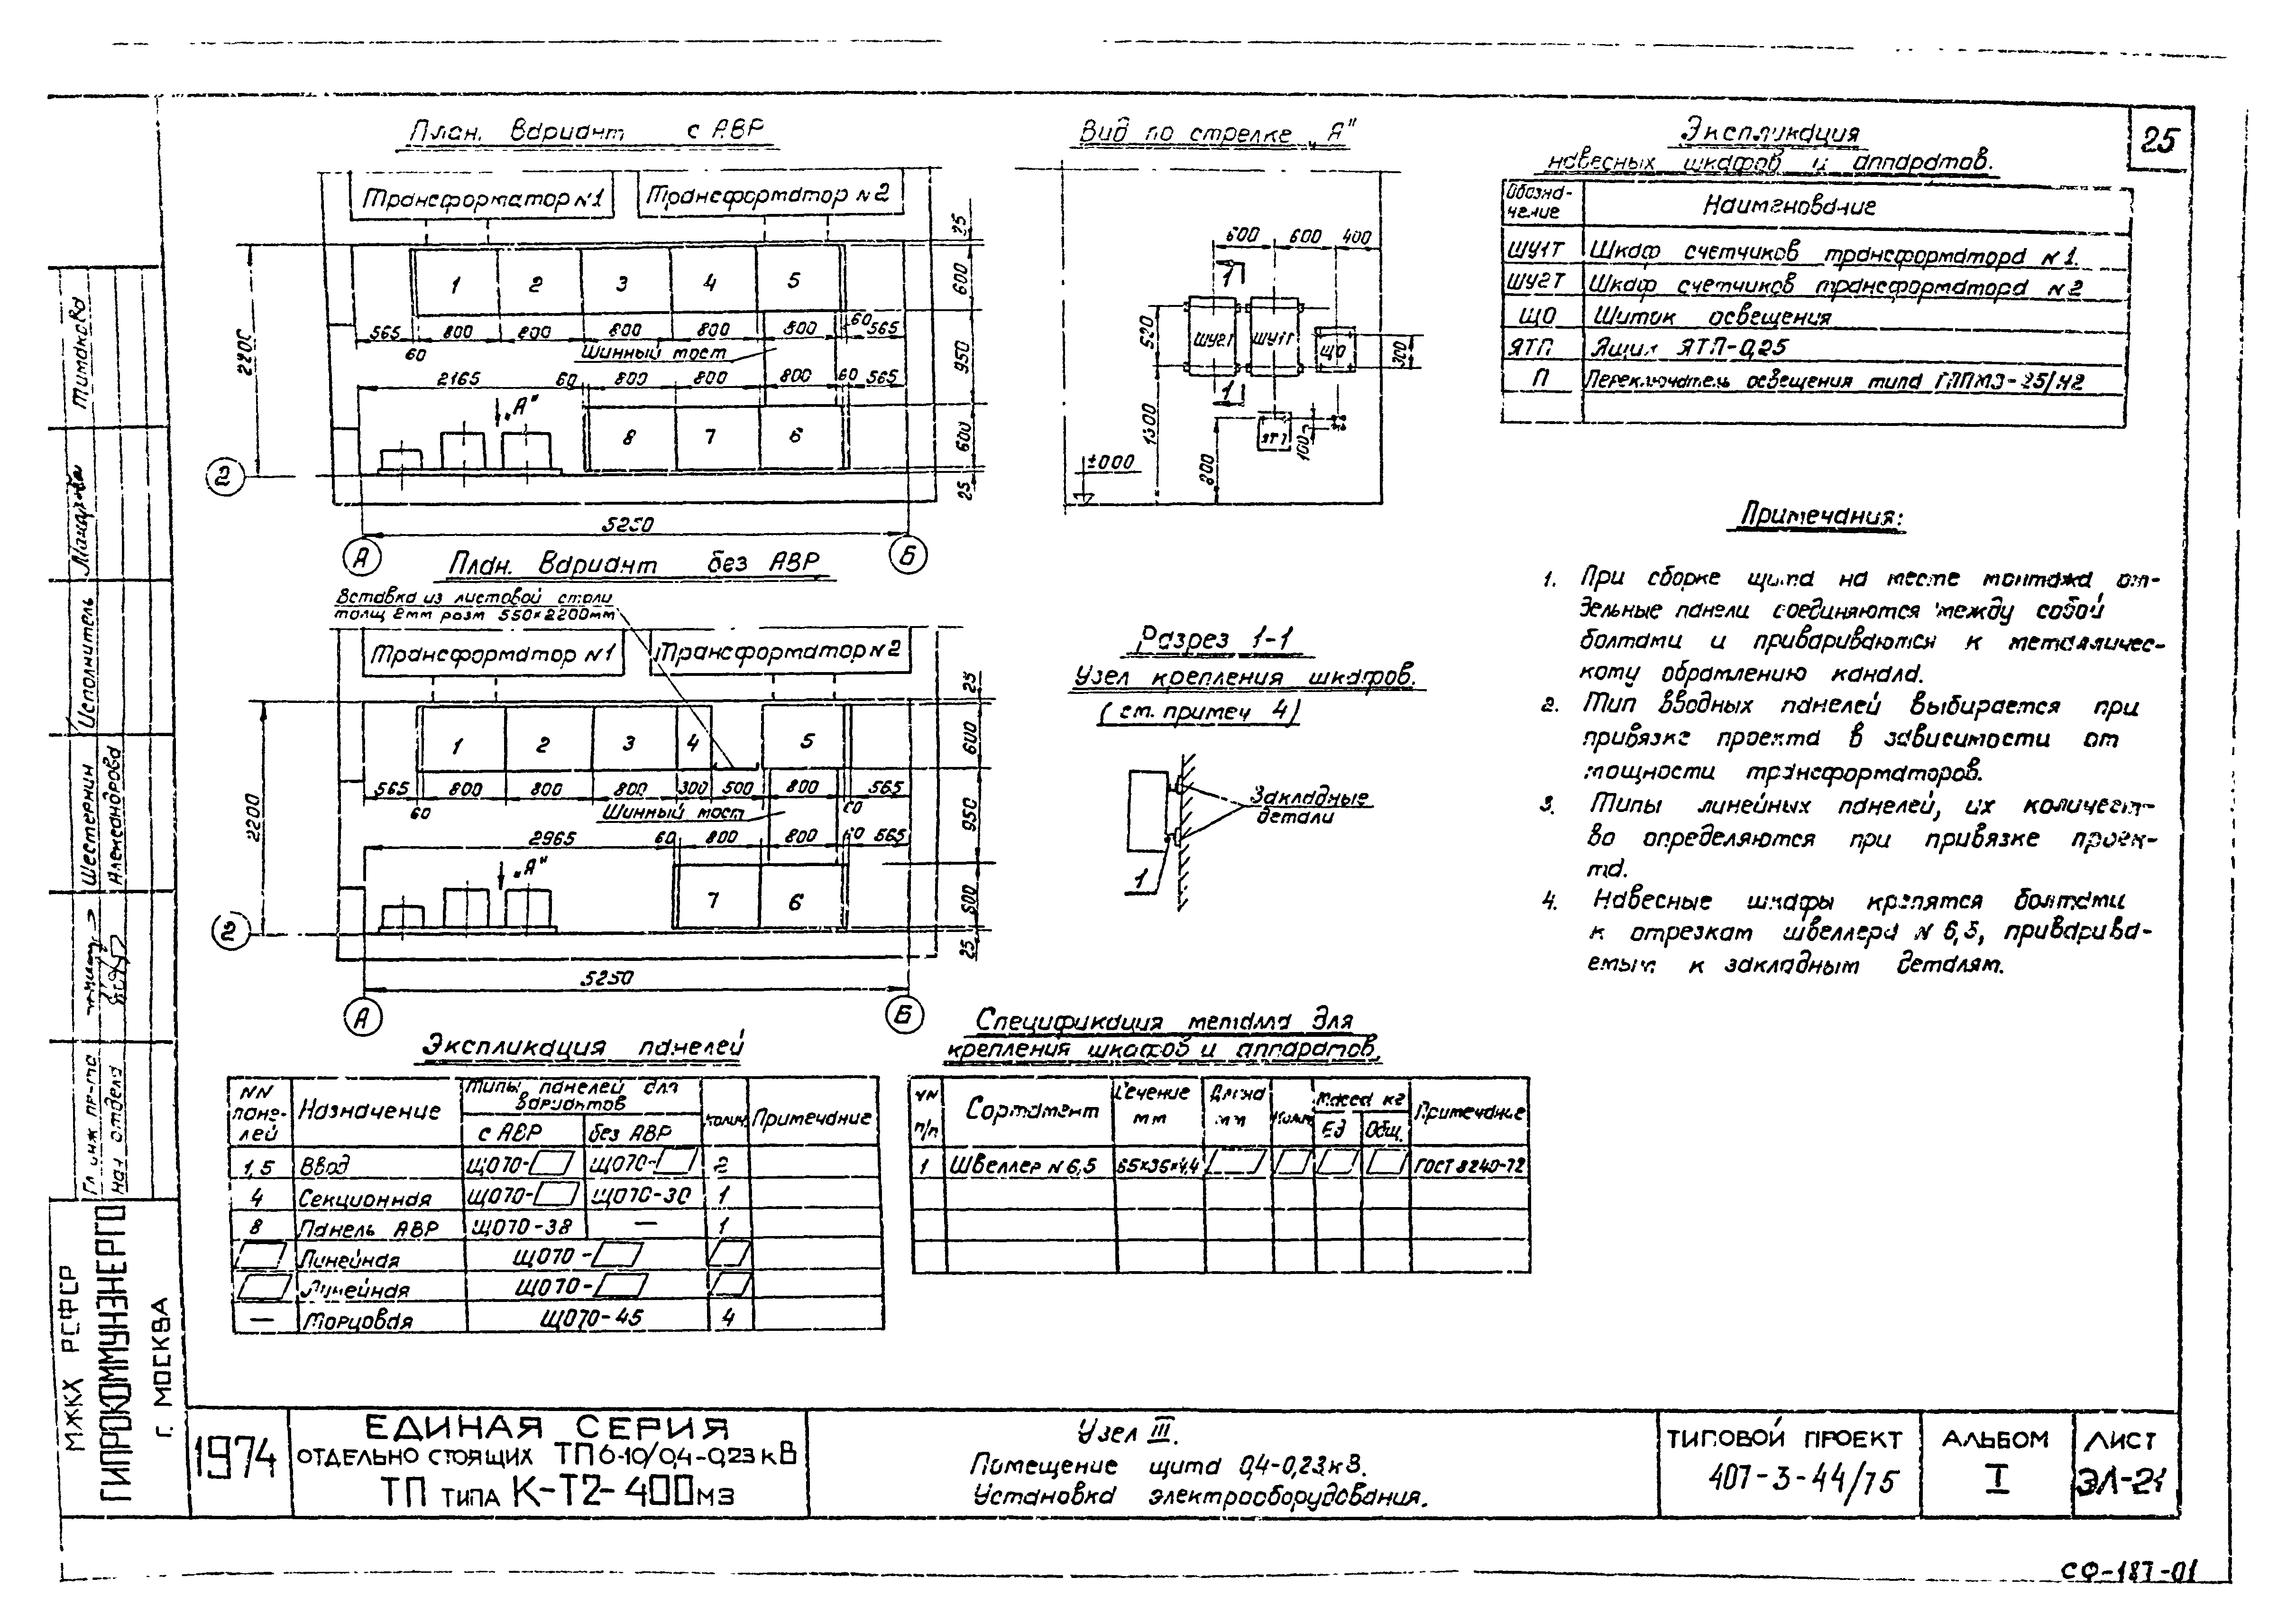 25
План. Вариант с АВР
Трансформатор №1
Трансформатор №2
1 2 3 4 5
565 60 800 800 800 800 800 60 565
Шинный мост
2165 60 800 800 800 60 565
"А"
8 7 6
2200
25 600 950 600 25
2
5250
А Б
План. Вариант без АВР
Вставка из листовой стали
толщ 2мм разм 550×2200мм
Трансформатор №1
Трансформатор №2
1 2 3 4 5
565 60 800 800 800 300 500 800 60 565
Шинный мост
2965 60 800 800 60 565
"А"
7 6
2200
25 600 950 600 25
2
5250
А Б
Вид по стрелке „А"
600 600 400
1
ШУ2Т ШУ1Т ЩО
520 300
1
ЯТП
1300 800 100
±000
Разрез 1-1
Узел крепления шкафов.
(см. примеч 4)
Закладные
детали
1
Экспликация
навесных шкафов и аппаратов.
Обозна-
чение
Наименование
ШУ1Т Шкаф счетчиков трансформатора №1.
ШУ2Т Шкаф счетчиков трансформатора №2
ЩО Щиток освещения
ЯТП Ящик ЯТП-0,25
П Переключатель освещения типа ГППМЗ-25/Н2
Примечания:
1. При сборке щита на месте монтажа от-
дельные панели соединяются между собой
болтами и привариваются к металличес-
кому обрамлению канала.
2. Тип вводных панелей выбирается при
привязке проекта в зависимости от
мощности трансформаторов.
3. Типы линейных панелей, их количест-
во определяются при привязке проек-
та.
4. Навесные шкафы крепятся болтами
к отрезкам швеллера №6,5, приварива-
емым к закладным деталям.
Экспликация панелей
NN
пане-
лей
Назначение
Типы панелей для
вариантов
с АВР без АВР
Колич.
Примечание
1,5 Ввод ЩО70- ЩО70- 2
4 Секционная ЩО70- ЩО70-30 1
8 Панель АВР ЩО70-38 — 1
Линейная ЩО70-
Линейная ЩО70-
— Торцовая ЩО70-45 4
Спецификация металла для
крепления шкафов и аппаратов.
NN
п/п
Сортамент
Сечение
мм
Длина
мм
Колич
Масса кг
Ед Общ.
Примечание
1 Швеллер №6,5 65×36×4,4 ГОСТ 8240-72
Тимакова
Исполнитель
Шестернин
Александрова
Гл инж пр-та
нач отдела
МЖКХ РСФСР
ГИПРОКОММУНЭНЕРГО
г. МОСКВА
1974
ЕДИНАЯ СЕРИЯ
ОТДЕЛЬНО СТОЯЩИХ ТП 6-10/0,4-0,23 кВ
ТП ТИПА К-Т2-400 мз
Узел III.
Помещение щита 0,4-0,23кВ.
Установка электрооборудования.
ТИПОВОЙ ПРОЕКТ
407-3-44/75
АЛЬБОМ
I
ЛИСТ
ЭЛ-21
СФ-187-01